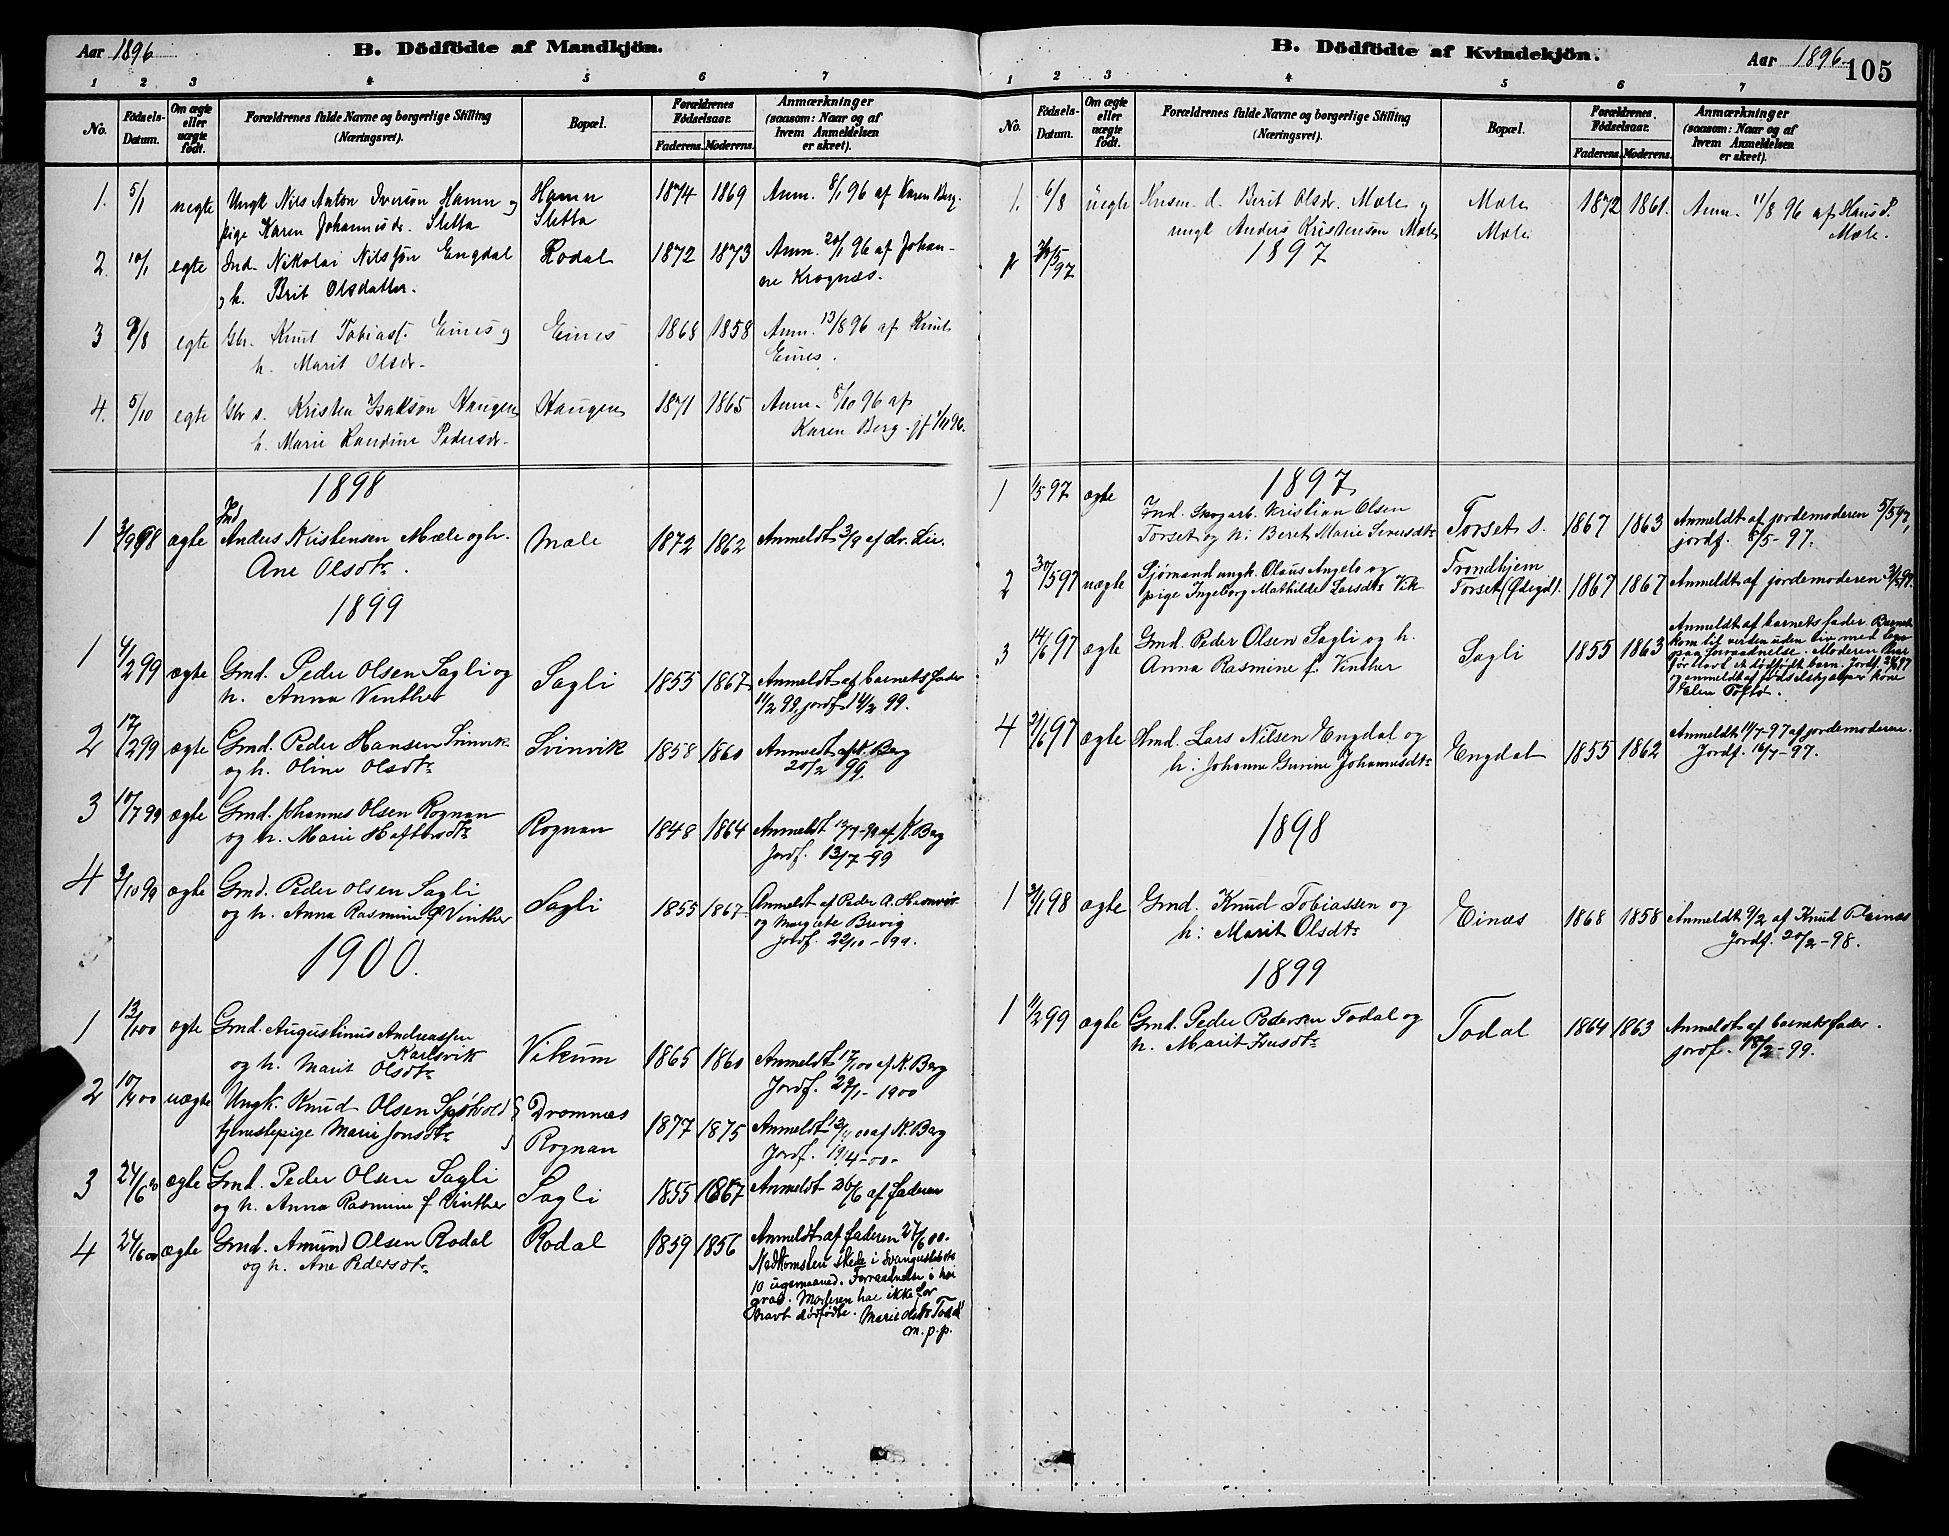 Aar 1896
B. Dödfödte af Mandkjön.
1 2 3 4 5 6 7
No. Födsels-Datum. Om ægte eller uægte födt. Forældrenes fulde Navne og borgerlige Stilling (Næringsvei). Bopæl. Forældrenes Födselsaar. Faderens. Moderens. Anmærkninger (saasom: Naar og af hvem Anmeldelsen er skeet).
1. 5/1 uegte Ungk Nils Anton Iverson Hamn og Hamn 1874 1869 Anm. 8/1 96 af Karen Berg.
pige Karen Johannesdr. Sletta Sletta
2. 10/1 egte Ind. Nikolai Nilssøn Engdal Rodal 1872 1873 Anm. 20/1 96 af Johan-
og h. Brit Olsdatter. ne Krognæs.
3 9/8 egte Gbr. Knut Tobiass. Eines og Eines 1868 1858 Anm. 13/8 96 af Knut
h. Marit Olsdr. Eines.
4. 5/10 egte Gbr s. Kristen Isakson Haugen Haugen 1871 1865 Anm. 8/10 96 af
h. Marie Randine Pedersdr. Karen Berg. jf 1/11 96.
1898
1 3/9 98 ægte Ind Anders Kristensen Mæle og h. Mæle 1872 1862 Anmeldt 3/9 af dr. Lie.
Ane Olsdtr.
1899
1 4/2 99 ægte Gmd. Peder Olsen Sagli og Sagli 1855 1867 Anmeldt af barnets fader
h. Anna Vinther 11/2 99. jordf. 14/2 99.
2 17/2 99 ægte Gmd. Peder Hansen Svinvik Svinvik 1858 1860 Anmeldt af K. Berg
og h. Oline Olsdtr 20/2 99.
3 10/7 99 ægte Gmd. Johannes Olsen Rognan Rognan 1848 1864 Anmeldt 12/7-99 af K. Berg
og h. Marie Haftorsdtr Jordf. 13/7-99
4 3/10 99 ægte Gmd. Peder Olsen Sagli Sagli 1855 1867 Anmeldt af Peder A.
og h. Anna Rasmine f Vinther og Margrete Brevig
Jordf. 22/10-99.
1900.
1 13/1 00 ægte Gmd. Augustinus Andreassen Vikum 1865 1860 Anmeldt 17/1 00 af K. Berg
Karlsvik
og h. Marit Olsdtr Jordf. 29/1-1900
2 10/4 00 uægte Ungk. Knud Olsen Sjøhold Dromnæs 1877 1875 Anmeldt 13/4 00 af K. Berg
tjenestepige Marie Jonsdtr Rognan Jordf. 19/4-00.
3 24/6 00 ægte Gmd. Peder Olsen Sagli Sagli 1855 1867 Anmeldt 26/6 af faderen
og h. Anna Rasmine f Vinther
4 24/6 00 ægte Gmd. Amund Olsen Rodal Rodal 1859 1856 Anmeldt af faderen 27/6 00.
og h. Ane Pedersdtr Nedkomsten skede i Svangerskabets
10 ugemaaned. Forraadnelse i høi
grad. Moderen har ikke før
havt dødfødte. Marie Todal
m. p. p.
B. Dödfödte af Kvindekjön.
Aar 1896
105
1 2 3 4 5 6 7
No. Födsels-Datum. Om ægte eller uægte födt. Forældrenes fulde Navne og borgerlige Stilling (Næringsvei). Bopæl. Forældrenes Födselsaar. Faderens. Moderens. Anmærkninger (saasom: Naar og af hvem Anmeldelsen er skeet).
1. 6/8 uegte Husm. d. Berit Olsdr. Mæle og Mæle 1872 1861. Anm. 11/8 96 af Hans P.
ungk Anders Kristenson Mæle Mæle Mæle.
1897
1897
1 1/5 97 ægte Ind. Skogarb. Kristian Olsen Torset s. 1867 1863 Anmeldt af jordemoderen 5/5 97,
Torset og h: Beret Marie Siversdtr jordf. 8/5-97.
2 30/5 97 uægte Sjømand ungk. Olaus Angelo og Trondhjem 1867 1867 Anmeldt af jordemoderen
pige Ingeborg Mathilde Larsdtr Vik Torset (Ødegd).
3 14/6 97 ægte Gmd. Peder Olsen Sagli og h. Sagli 1855 1863 Anmeldt af barnets fader. Barnet
Anna Rasmine f. Vinther kom til verden uden liv med tegn
paa forraadnelse. Moderen har
før havt et dødfødt barn. Jordf.
og anmeldt af fødselshjælper kone
Elen Toftø.
4 21/6 97 ægte Gmd. Lars Nilsen Engdal og Engdal 1855 1862 Anmeldt 11/7-97 af jordemoderen.
h: Johanne Gurine Johannesdtr Jordf. 16/7-97.
1898
1 31/1 98 ægte Gmd. Knud Tobiassen og Einæs 1868 1858 Anmeldt 9/2 af Knud Einæs
h: Marit Olsdtr Jordf. 20/2-98.
1899
1 11/2 99 ægte Gmd. Peder Pedersen Todal og Todal 1864 1863 Anmeldt af barnets fader.
h. Marit jordf. 18/2-99.